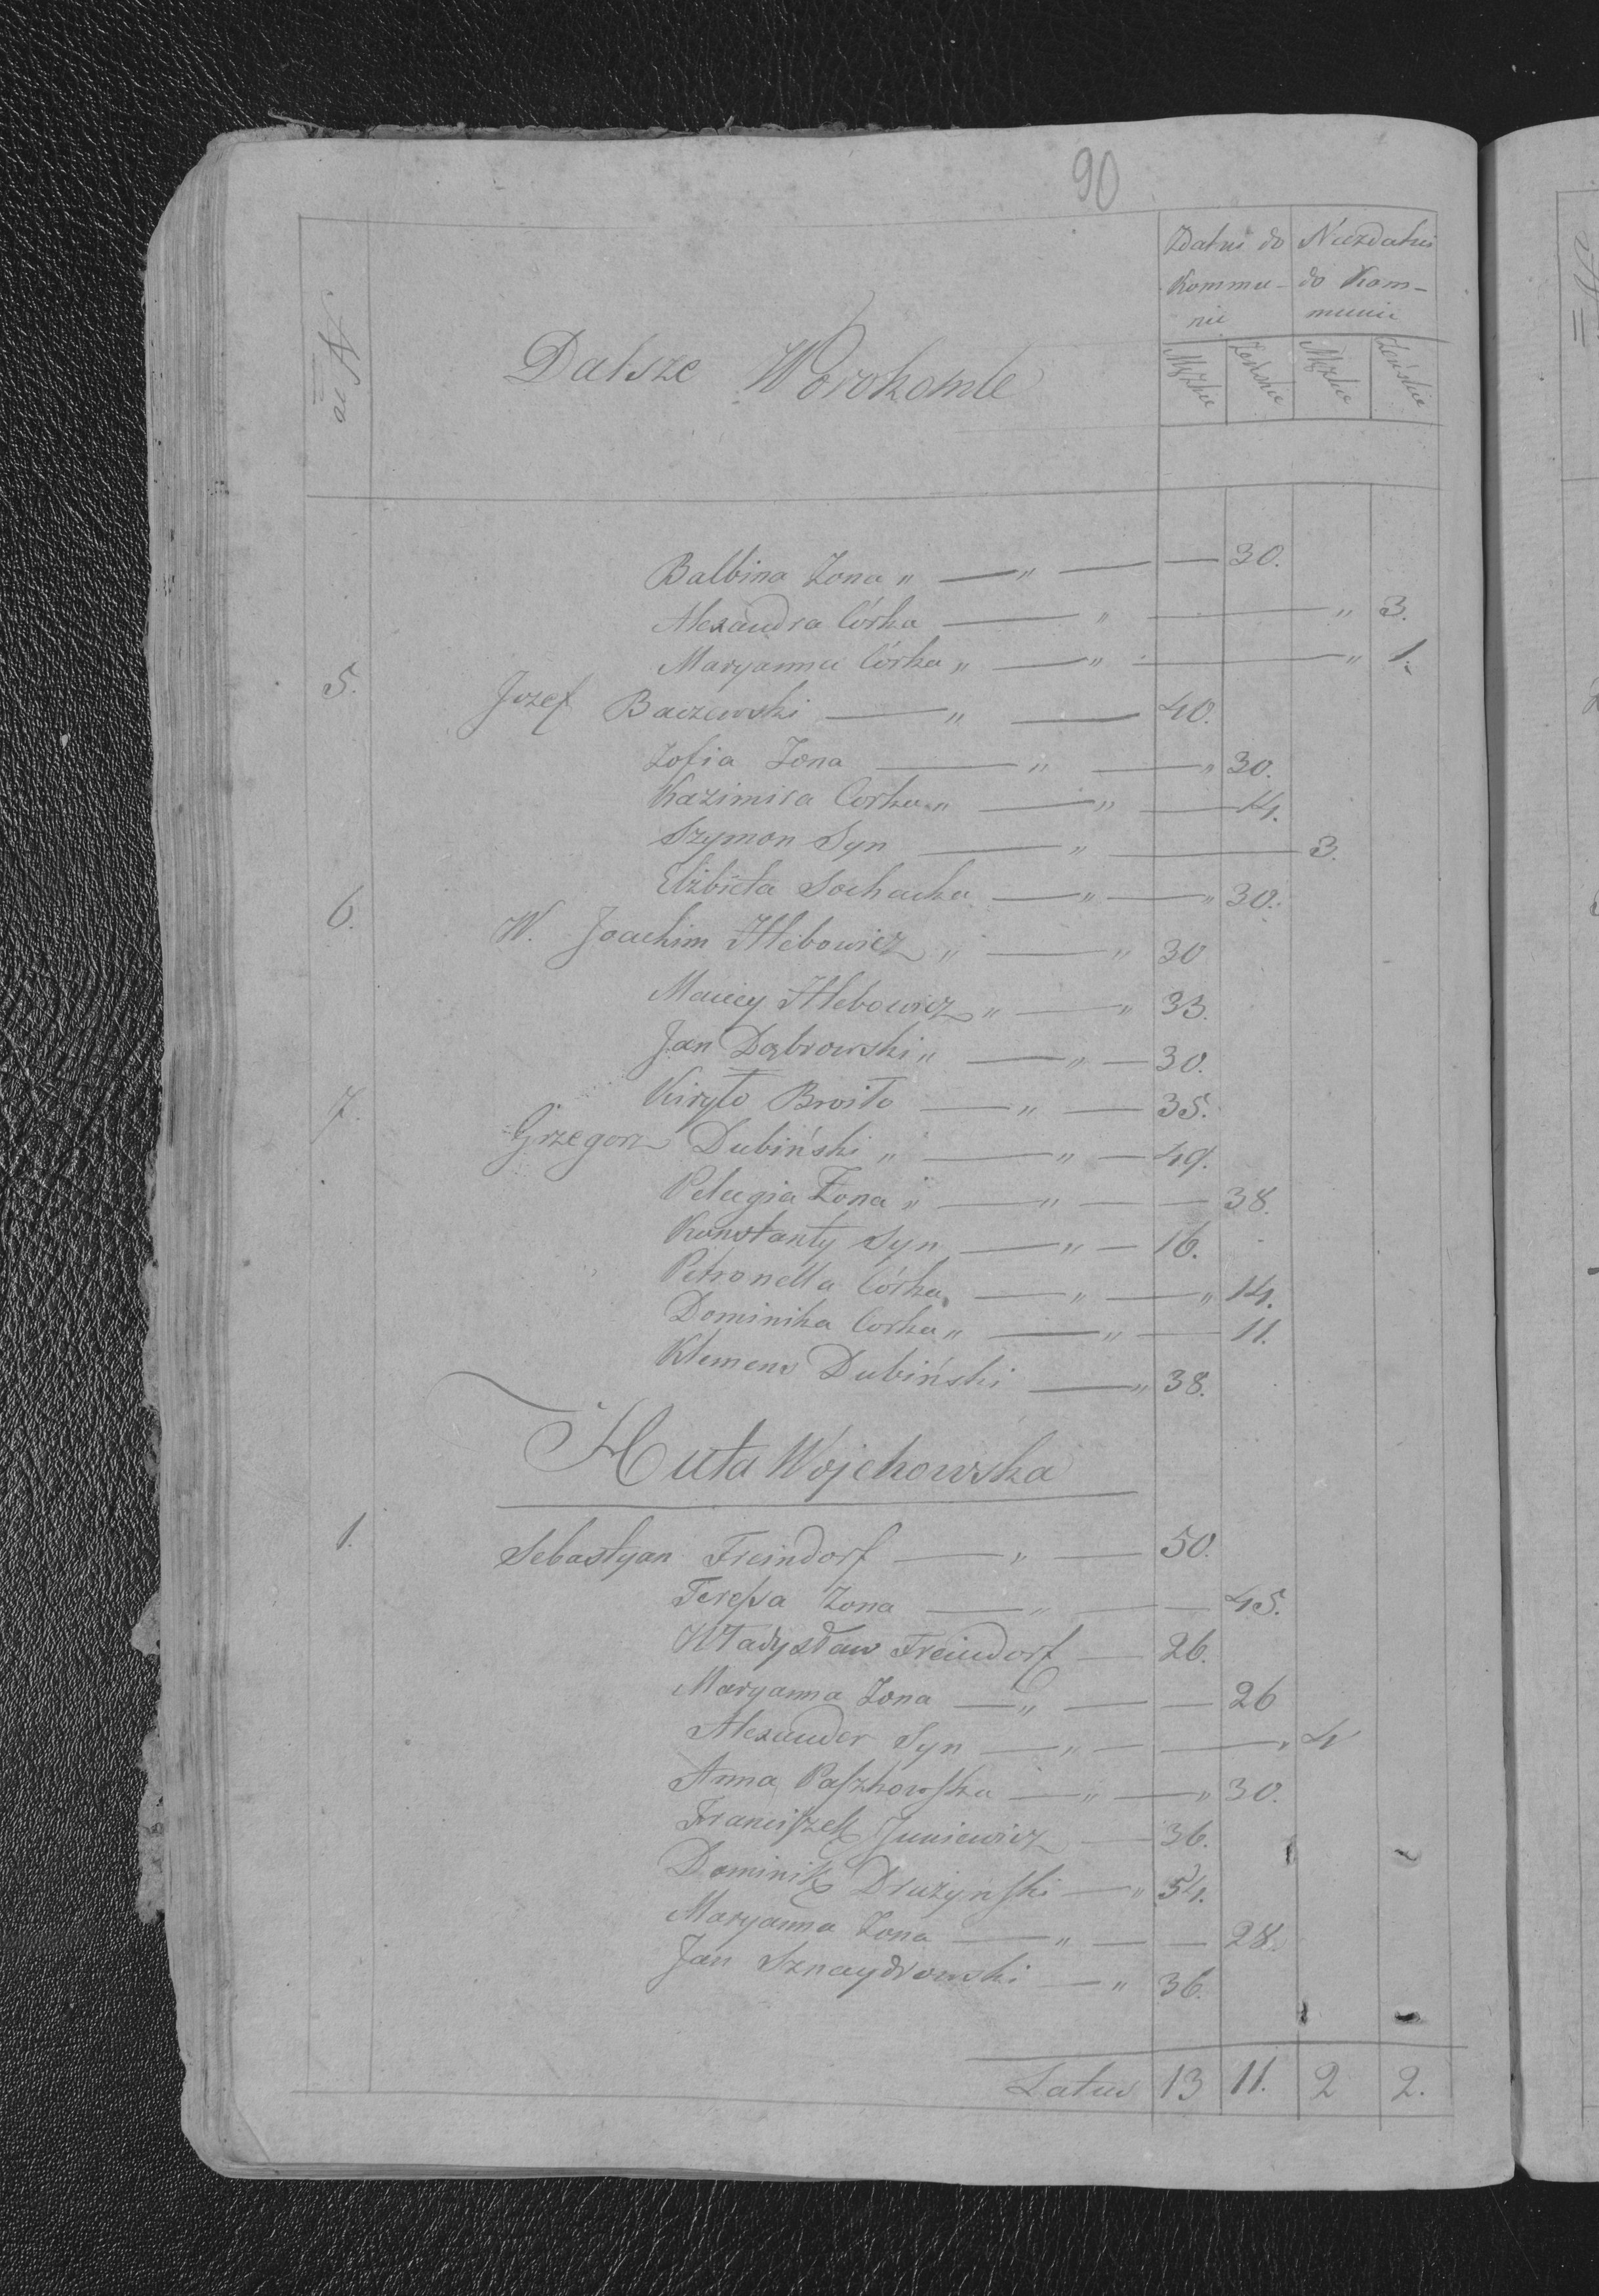 90
Zdatni do Niezdatni
Kommu- do Kom-
nii munii
№
Dalsze Worokomle
Męzkie Żeńskie Męzkie Żeńskie
Balbina Zona „ — „ — 30.
Alexandra Córka — „ — „ 3.
Maryanna Córka „ — „ — „ 1.
5. Jozef Baczewski — „ — 40.
Zofia Zona — „ — „ 30.
Kazimira Corka „ — „ — 14.
Szymon Syn — „ — 3.
Elżbieta Sochacka — „ — „ 30.
6. W. Joachim Hlebowicz „ — „ 30
Maciey Hlebowicz „ — „ 33.
Jan Dąbrowski „ — „ — 30.
Kiryło Broiło — „ — 35.
7. Grzegorz Dubiński „ — „ — 49.
Pelagia Żona „ — „ — 38.
Konstanty Syn — „ — 16.
Petronella Córka — „ — „ 14.
Dominika Corka „ — „ — 11.
Klemens Dubiński — „ 38.
Huta Wojchowska
1. Sebastyan Freindorf — „ — 50.
Teressa Zona — „ — 45.
Władysław Freindorf — 26.
Maryanna Zona — „ — 26
Alexander Syn — „ — „ 4
Anna Paszkowska — „ — „ 30.
Franciszek Juniewicz — 36.
Dominik Drużynski — „ 54.
Maryanna Zona — „ — 28.
Jan Sznaydrowski — „ 36.
Latus 13 11. 2 2.